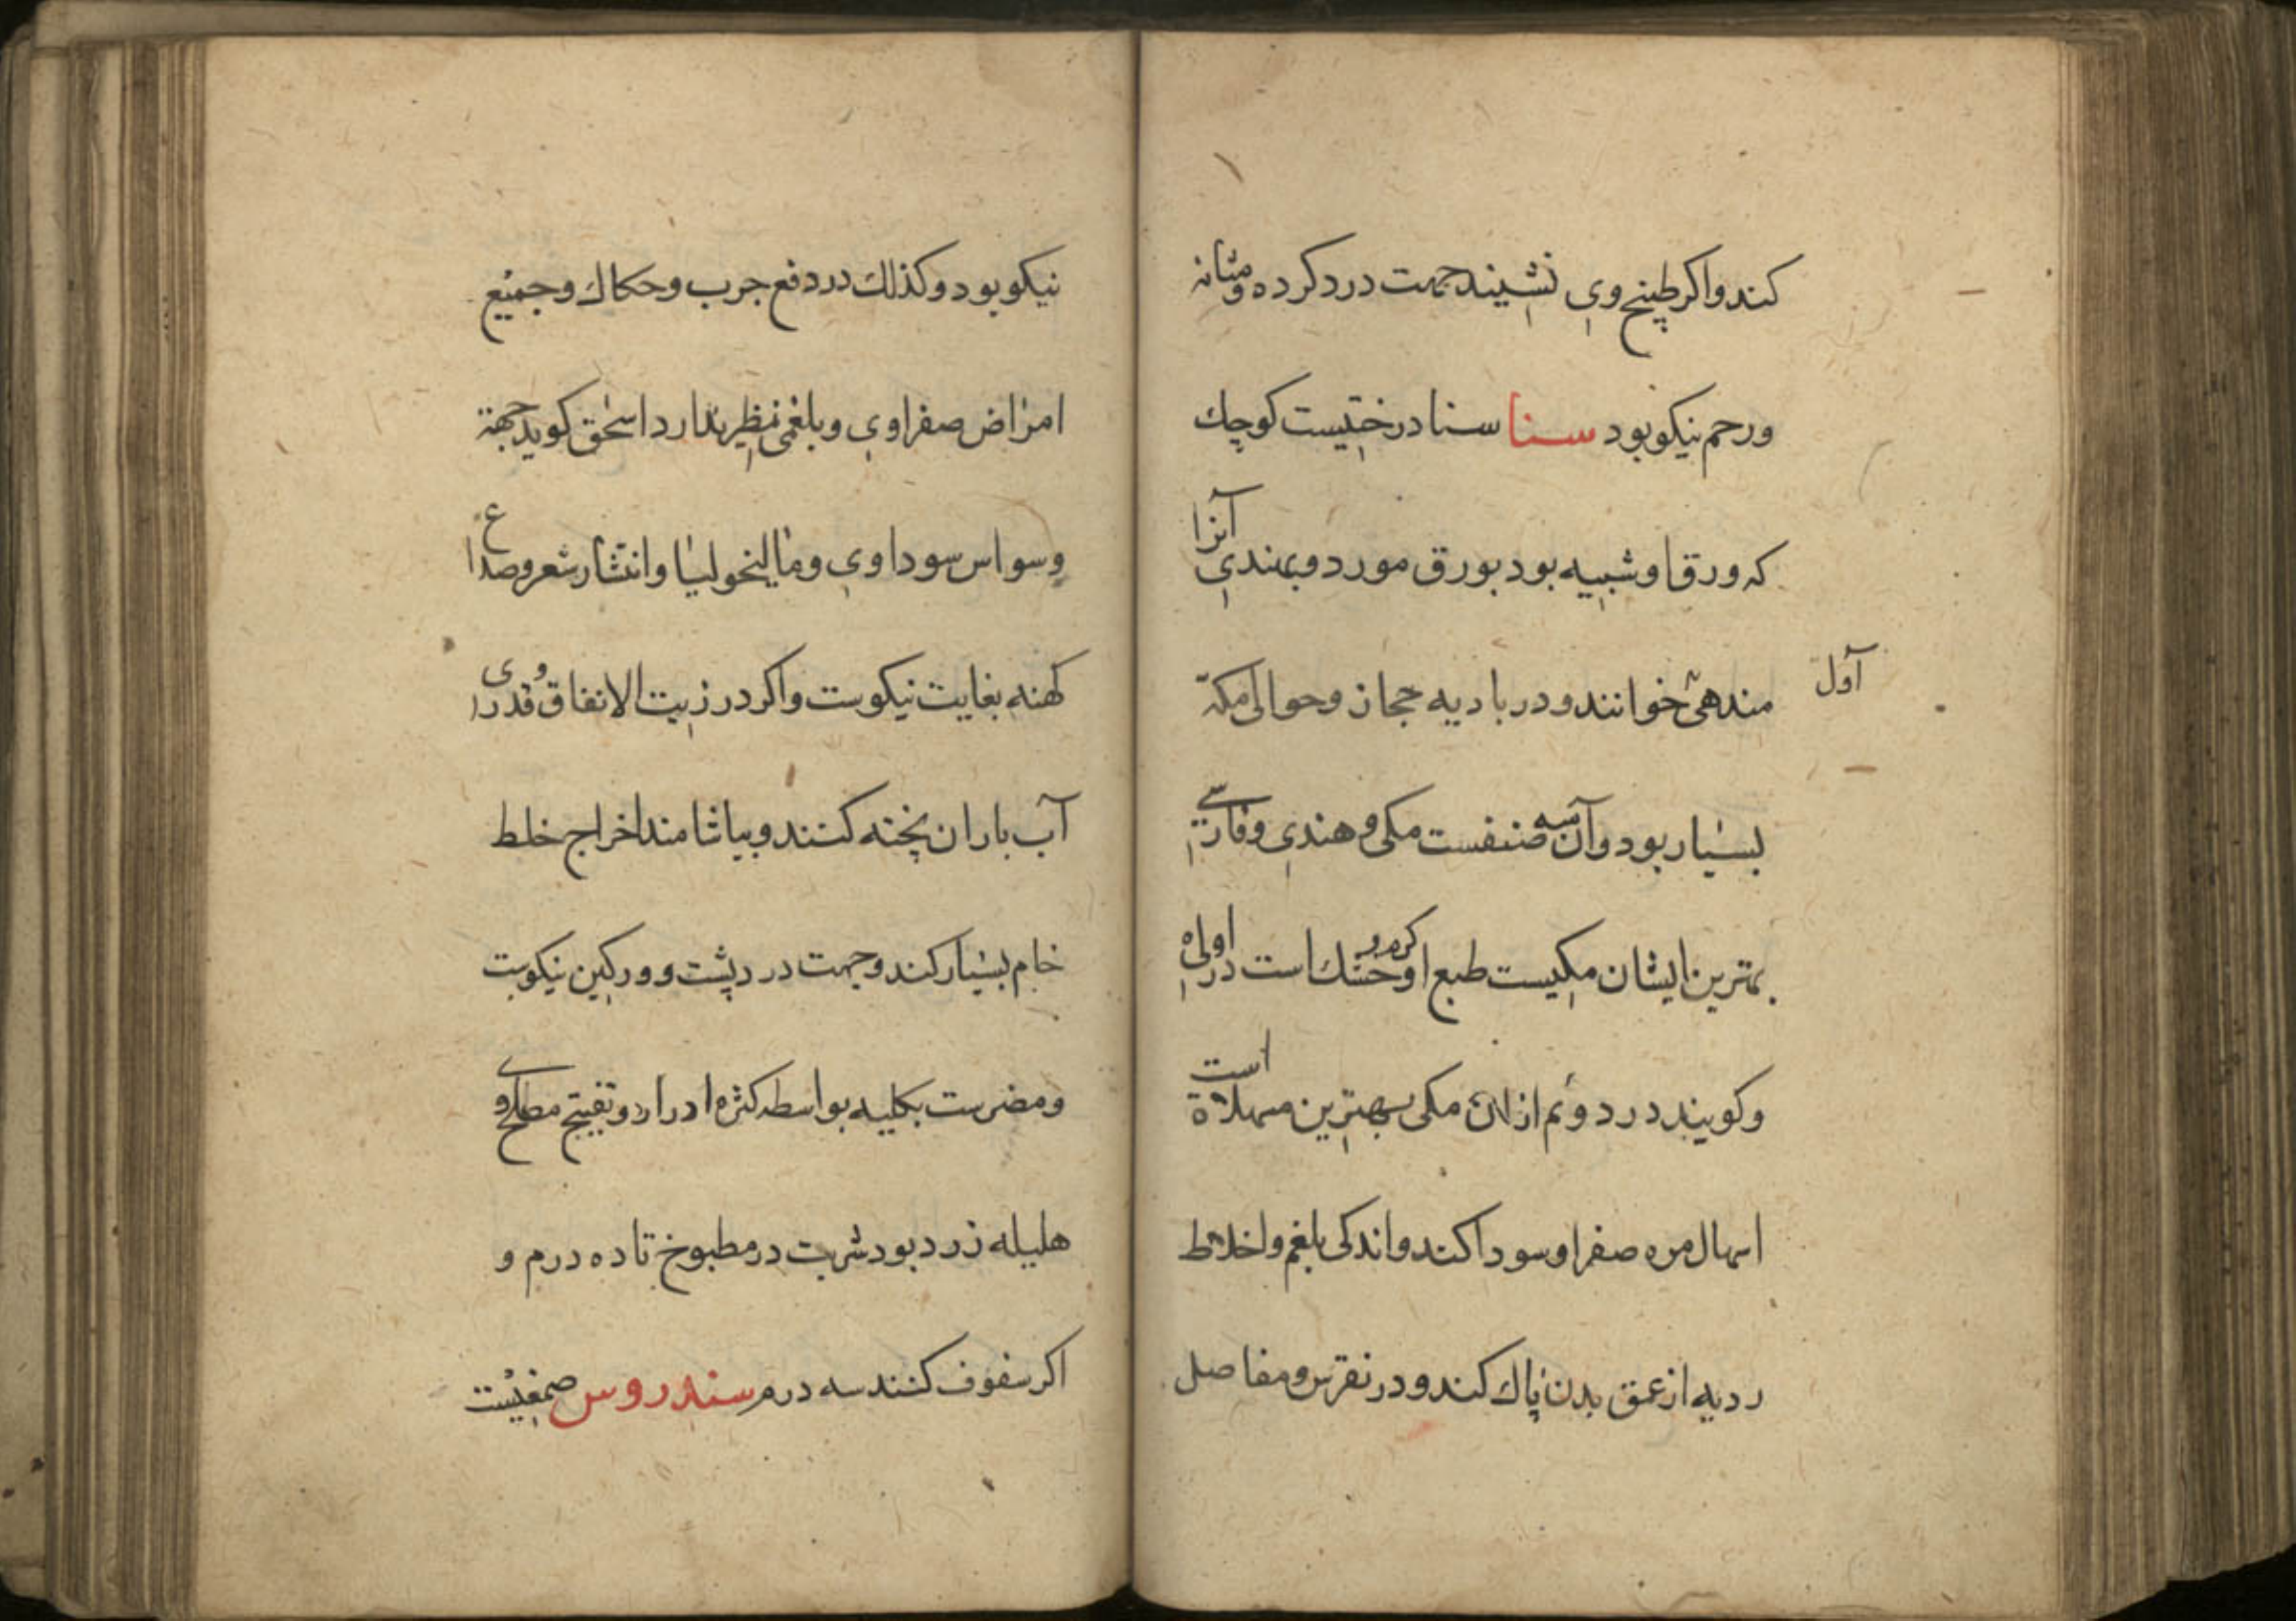 کند واکر طبیخ وی نشیند جهت درد کرده ومثانه
ورحم نیکو بود سنا سنا درختیست کوچك
که ورق او شبیه بود بورق مورد وبهندی آنرا
مندهی خوانند ودر بادیه حجاز وحوالی مکه
اول
بسیار بود وآن سه صنفست مکی وهندی وفارسی
بهترین ایشان مکیست طبع او کرم وخشك است در اولی
وکویند در دوم ازان مکی بهترین مسهلاة است
اسهال مره صفرا وسودا کند واندکی بلغم واخلاط
ردیه از عمق بدن پاك کند ودر نقرس ومفاصل
نیکو بود وکذلك در دفع جرب وحکاك وجمیع
امراض صفراوی وبلغمی نظیر ندارد اسحق کوید جهة
وسواس سوداوی ومالیخولیا وانتشار شعر وصداع
کهنه بغایت نیکوست واکر در زیت الانفاق وقدری
آب باران پخته کنند وبیاشامند اخراج خلط
خام بسیار کند وجهت درد پشت وورکین نیکوست
ومضرست بکلیه بواسطه کثره ادرار وتفیتح مصلح وی
هلیله زرد بود شربت در مطبوخ تا ده درم و
اکر سفوف کنند سه درم سندروس صمغیست